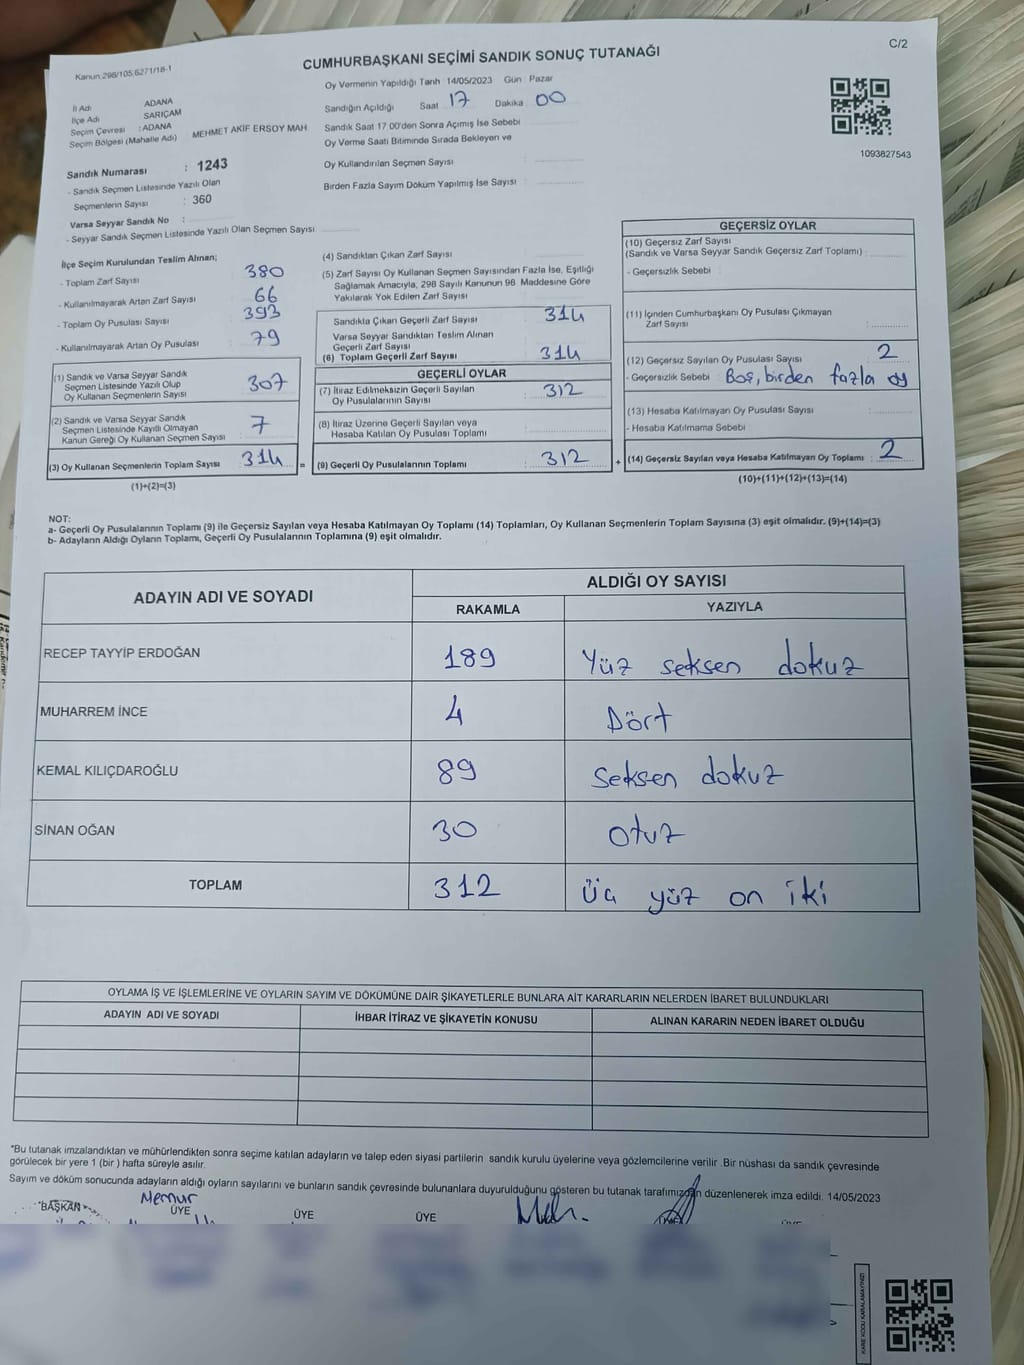 Kanun:298/105,6271/18-1
CUMHURBAŞKANI SEÇİMİ SANDIK SONUÇ TUTANAĞI
C/2
İl Adı ADANA
İlçe Adı SARIÇAM
Seçim Çevresi :ADANA
Seçim Bölgesi (Mahalle Adı) MEHMET AKİF ERSOY MAH
Sandık Numarası : 1243
- Sandık Seçmen Listesinde Yazılı Olan
Seçmenlerin Sayısı : 360
Varsa Seyyar Sandık No :
- Seyyar Sandık Seçmen Listesinde Yazılı Olan Seçmen Sayısı:
Oy Vermenin Yapıldığı Tarih :14/05/2023 Gün : Pazar
Sandığın Açıldığı Saat 17 Dakika 00
Sandık Saat 17 00'den Sonra Açımış İse Sebebi
Oy Verme Saati Bitiminde Sırada Bekleyen ve
Oy Kullandırılan Seçmen Sayısı :
Birden Fazla Sayım Döküm Yapılmış İse Sayısı :
1093827543
İlçe Seçim Kurulundan Teslim Alınan;
- Toplam Zarf Sayısı 380
- Kullanılmayarak Artan Zarf Sayısı 66
- Toplam Oy Pusulası Sayısı 393
- Kullanılmayarak Artan Oy Pusulası 79
(1) Sandık ve Varsa Seyyar Sandık
Seçmen Listesinde Yazılı Olup
Oy Kullanan Seçmenlerin Sayısı 307
(2) Sandık ve Varsa Seyyar Sandık
Seçmen Listesinde Kayıtlı Olmayan
Kanun Gereği Oy Kullanan Seçmen Sayısı 7
(3) Oy Kullanan Seçmenlerin Toplam Sayısı 314 =
(1)+(2)=(3)
(4) Sandıktan Çıkan Zarf Sayısı :
(5) Zarf Sayısı Oy Kullanan Seçmen Sayısından Fazla İse, Eşitliği
Sağlamak Amacıyla, 298 Sayılı Kanunun 98 Maddesine Göre
Yakılarak Yok Edilen Zarf Sayısı
Sandıkta Çıkan Geçerli Zarf Sayısı 314
Varsa Seyyar Sandıktan Teslim Alınan
Geçerli Zarf Sayısı
(6) Toplam Geçerli Zarf Sayısı 314
GEÇERLİ OYLAR
(7) İtiraz Edilmeksizin Geçerli Sayılan
Oy Pusulalarının Sayısı : 312
(8) İtiraz Üzerine Geçerli Sayılan veya
Hesaba Katılan Oy Pusulası Toplamı
(9) Geçerli Oy Pusulalarının Toplamı 312 +
GEÇERSİZ OYLAR
(10) Geçersiz Zarf Sayısı
(Sandık ve Varsa Seyyar Sandık Geçersiz Zarf Toplamı) :
- Geçersizlik Sebebi :
(11) İçinden Cumhurbaşkanı Oy Pusulası Çıkmayan
Zarf Sayısı :
(12) Geçersiz Sayılan Oy Pusulası Sayısı 2
- Geçersizlik Sebebi : Boş, birden fazla oy
(13) Hesaba Katılmayan Oy Pusulası Sayısı :
- Hesaba Katılmama Sebebi :
(14) Geçersiz Sayılan veya Hesaba Katılmayan Oy Toplamı : 2
(10)+(11)+(12)+(13)=(14)
NOT:
a- Geçerli Oy Pusulalarının Toplamı (9) ile Geçersiz Sayılan veya Hesaba Katılmayan Oy Toplamı (14) Toplamları, Oy Kullanan Seçmenlerin Toplam Sayısına (3) eşit olmalıdır. (9)+(14)=(3)
b- Adayların Aldığı Oyların Toplamı, Geçerli Oy Pusulalarının Toplamına (9) eşit olmalıdır.
ADAYIN ADI VE SOYADI ALDIĞI OY SAYISI
RAKAMLA YAZIYLA
RECEP TAYYİP ERDOĞAN 189 Yüz seksen dokuz
MUHARREM İNCE 4 Dört
KEMAL KILIÇDAROĞLU 89 Seksen dokuz
SİNAN OĞAN 30 Otuz
TOPLAM 312 Üç yüz on iki
OYLAMA İŞ VE İŞLEMLERİNE VE OYLARIN SAYIM VE DÖKÜMÜNE DAİR ŞİKAYETLERLE BUNLARA AİT KARARLARIN NELERDEN İBARET BULUNDUKLARI
ADAYIN ADI VE SOYADI İHBAR İTİRAZ VE ŞİKAYETİN KONUSU ALINAN KARARIN NEDEN İBARET OLDUĞU
*Bu tutanak imzalandıktan ve mühürlendikten sonra seçime katılan adayların ve talep eden siyasi partilerin sandık kurulu üyelerine veya gözlemcilerine verilir .Bir nüshası da sandık çevresinde
görülecek bir yere 1 (bir ) hafta süreyle asılır.
Sayım ve döküm sonucunda adayların aldığı oyların sayılarını ve bunların sandık çevresinde bulunanlara duyurulduğunu gösteren bu tutanak tarafımızdan düzenlenerek imza edildi. 14/05/2023
BAŞKAN Memur
ÜYE ÜYE ÜYE
KARE KODU KARALAMAYINIZ!